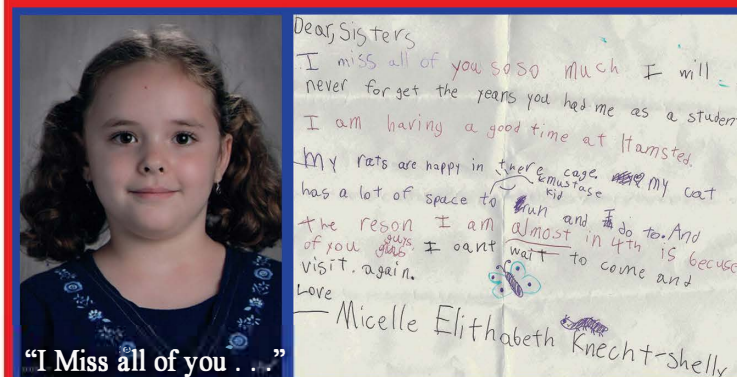 Dear, Sisters
I miss all of you so so much I will
never forget the years you had me as a student
I am having a good time at Hamsted.
My rats are happy in there cage. my cat
has a lot of space to run and I do to. And
kmustase
kid
the reson I am almost in 4th is becuse
of you guys. I cant wait to come and
visit. again.
Love
Micelle Elithabeth Knecht-shelly
“I Miss all of you . . .”